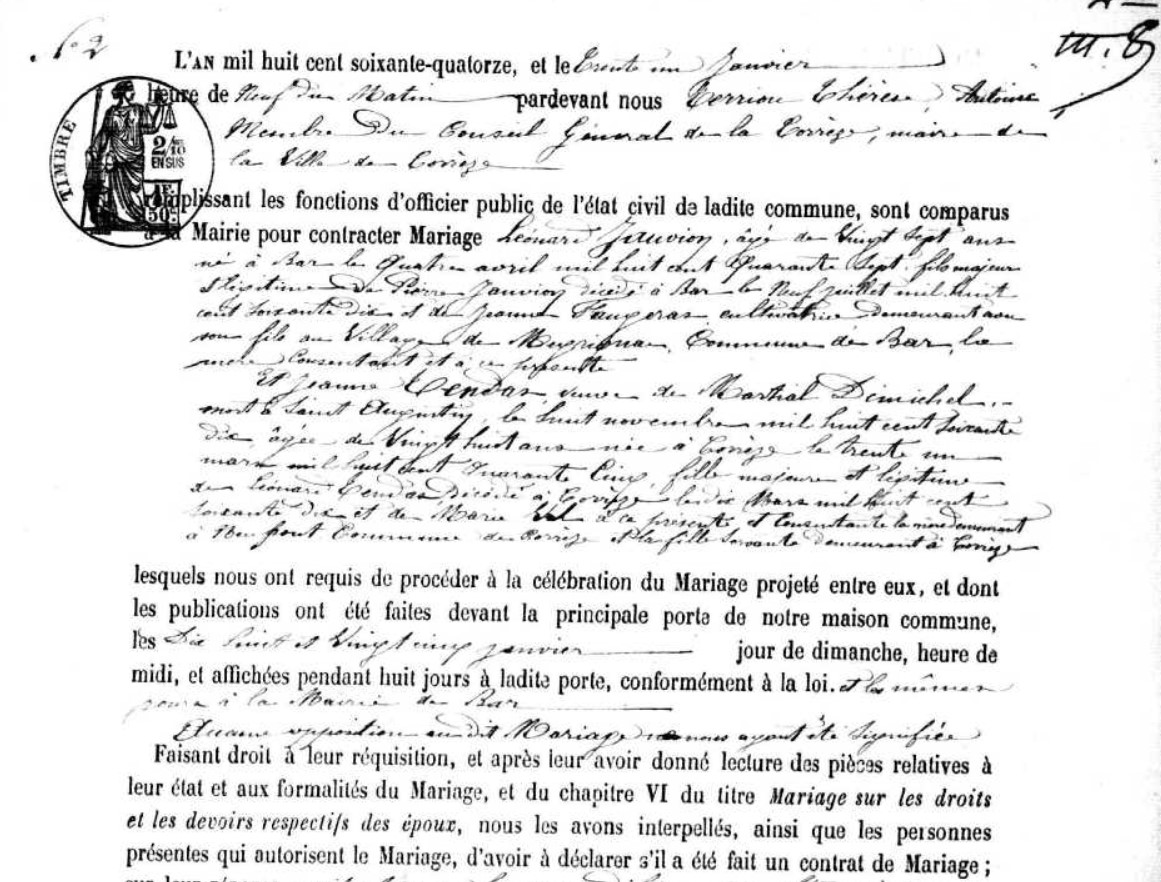 N° 2
L'AN mil huit cent soixante-quatorze, et le trente un Janvier
heure de Neuf du Matin pardevant nous Terriou Thérèse, Antoine
Membre Du Conseil Général de la Corrèze, maire de
la Ville de Corrèze
TIMBRE
2/10
EN SUS
1F.
50c
remplissant les fonctions d'officier public de l'état civil de ladite commune, sont comparus
à la Mairie pour contracter Mariage Léonard Jauvion, âgé de Vingt Sept ans
né à Bar le Quatre avril mil huit cent Quarante Sept, fils majeur
& légitime De Pierre Jauvion décédé à Bar le Neuf juillet mil huit
cent soixante dix et de Jeanne Faugeras, cultivatrice demeurant avec
son fils au Village de Commune de Bar, la
mère Consentant et à ce présente
Et Jeanne veuve de Martial Dimichel
mort à Saint Augustin, le huit novembre mil huit cent soixante
dix, âgée de Vingt huit ans née à Corrèze le trente un
mars mil huit cent Quarante Cinq, fille majeure et légitime
de Léonard Décédé à Corrèze le dix Mars mil huit cent
soixante dix et de Marie à ce présente et Consentante la mère demeurant
à Commune de Corrèze et la fille Servante demeurant à Corrèze
lesquels nous ont requis de procéder à la célébration du Mariage projeté entre eux, et dont
les publications ont été faites devant la principale porte de notre maison commune,
les Dix huit et Vingt cinq janvier jour de dimanche, heure de
midi, et affichées pendant huit jours à ladite porte, conformément à la loi. et les mêmes
jours à la Mairie de Bar
Aucune opposition au dit Mariage ne nous ayant été Signifiée
Faisant droit à leur réquisition, et après leur avoir donné lecture des pièces relatives à
leur état et aux formalités du Mariage, et du chapitre VI du titre Mariage sur les droits
et les devoirs respectifs des époux, nous les avons interpellés, ainsi que les personnes
présentes qui autorisent le Mariage, d'avoir à déclarer s'il a été fait un contrat de Mariage ;